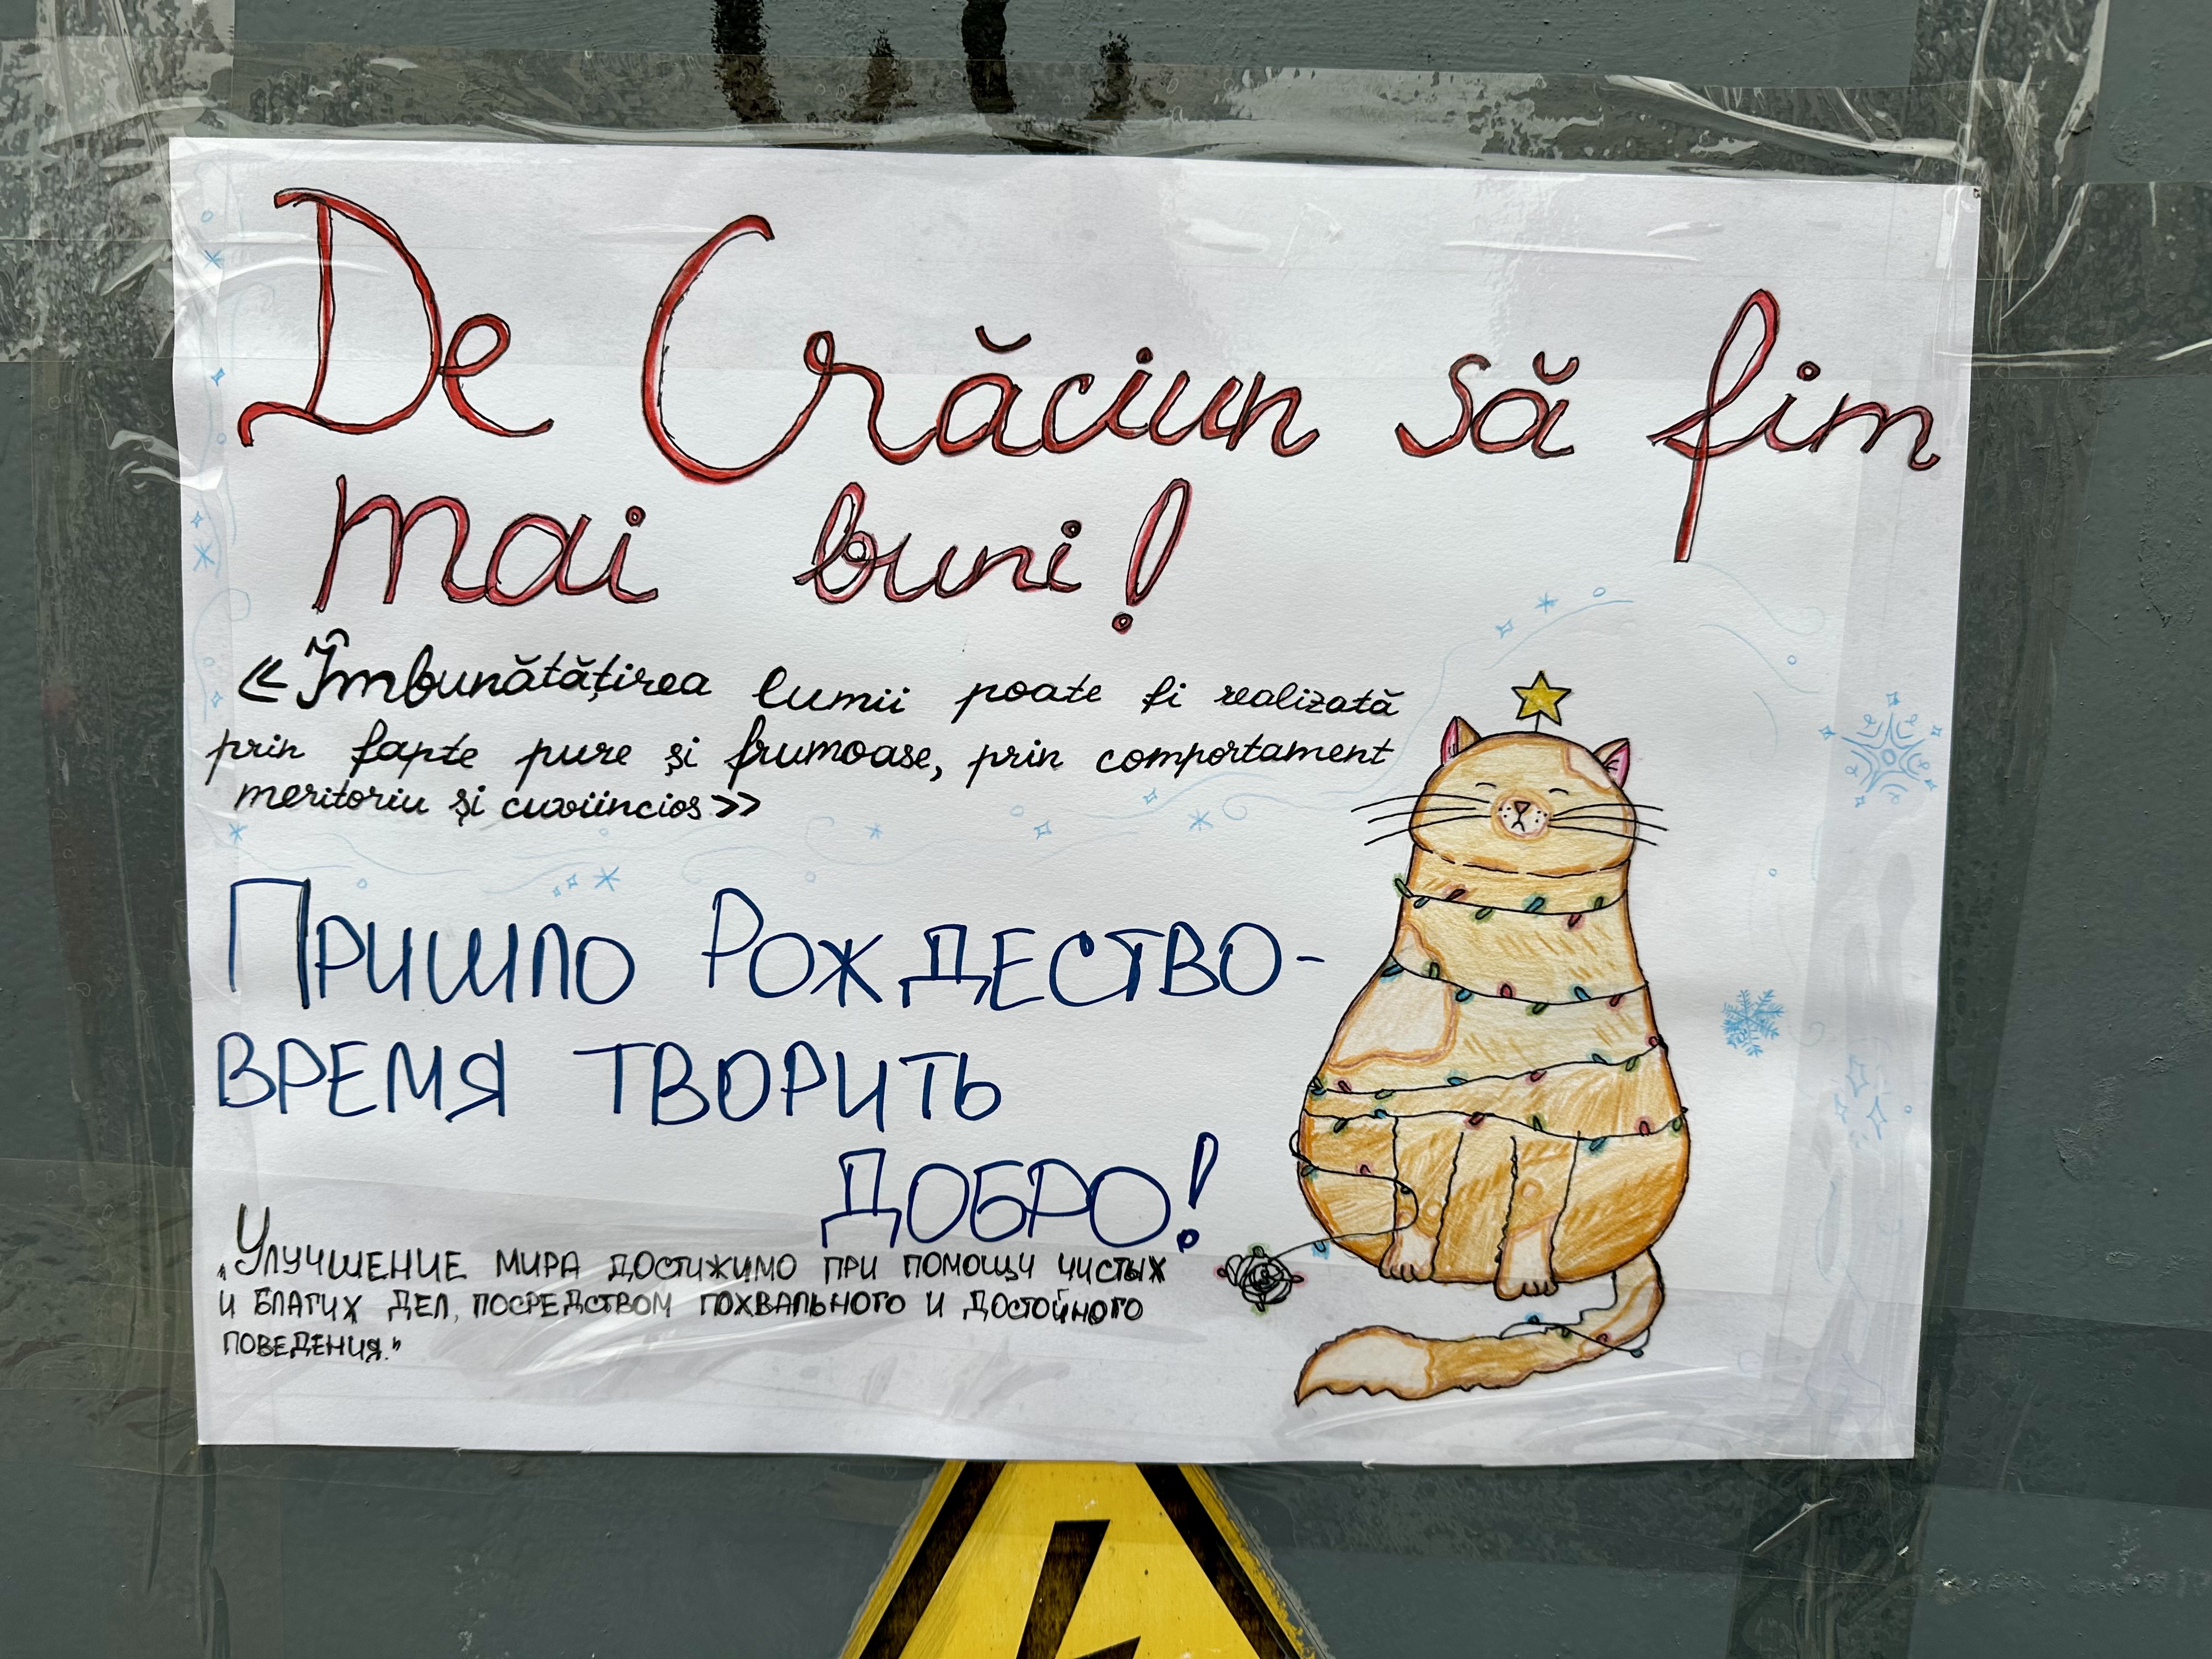 De Crăciun să fim
mai buni!
«Îmbunătățirea lumii poate fi realizată
prin fapte pure și frumoase, prin comportament
meritoriu și cuviincios»
Пришло Рождество-
время творить
добро!
„Улучшение мира достижимо при помощи чистых
и благих дел, посредством похвального и достойного
поведения."